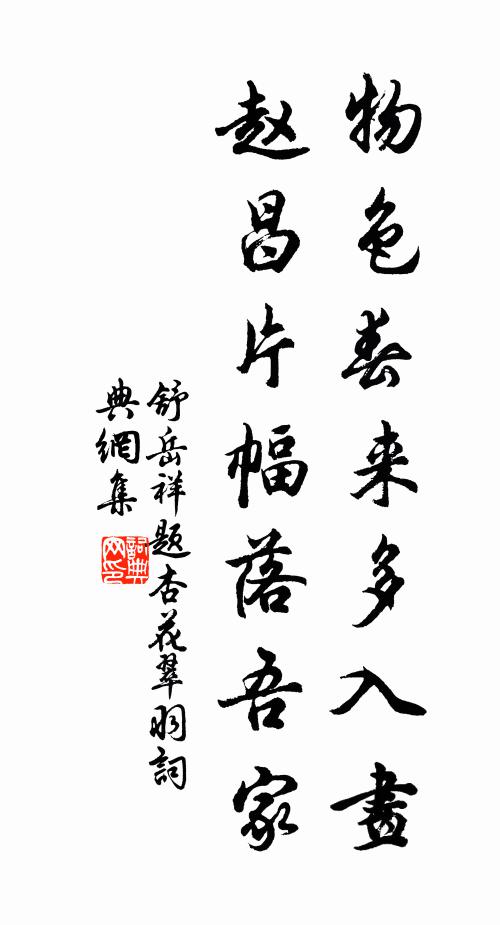 物色春来多入畫
赵昌片幅落吾家
舒岳祥題杏花翠羽詞
典網集
詞典
网印